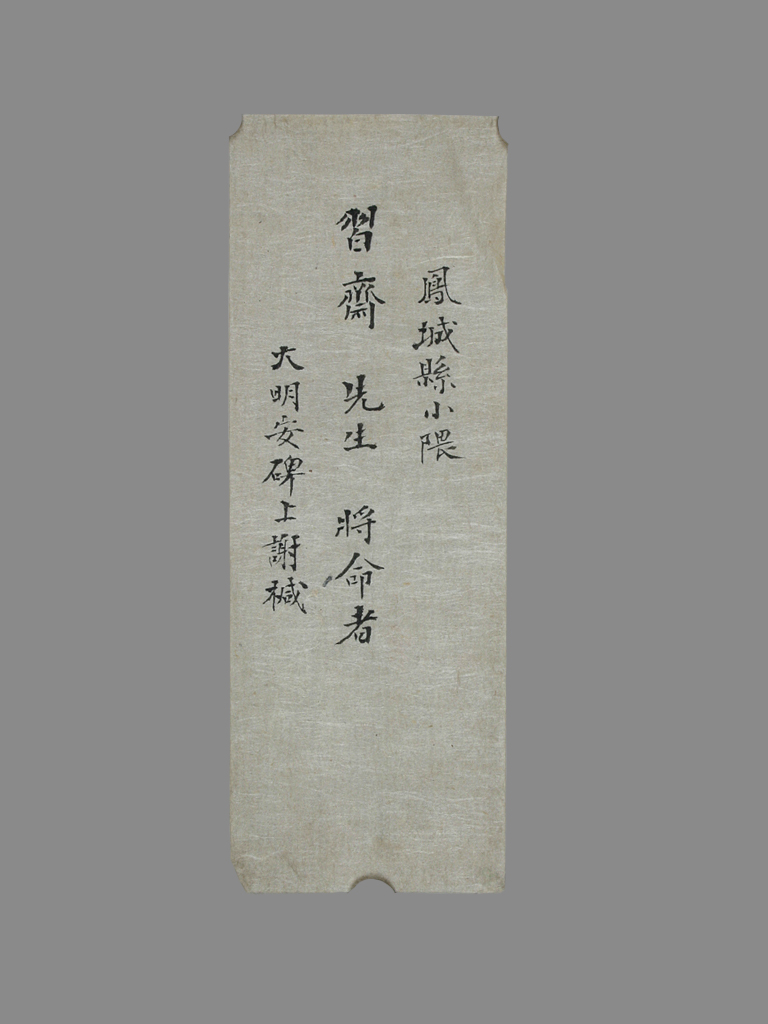 鳳城縣小隈
習齋 先生 將命者
大明安碑上謝椷